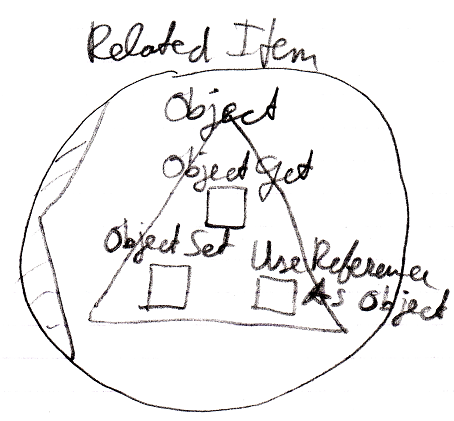 Related Item
Object
Object Get
Object Set
Use Reference
As Object